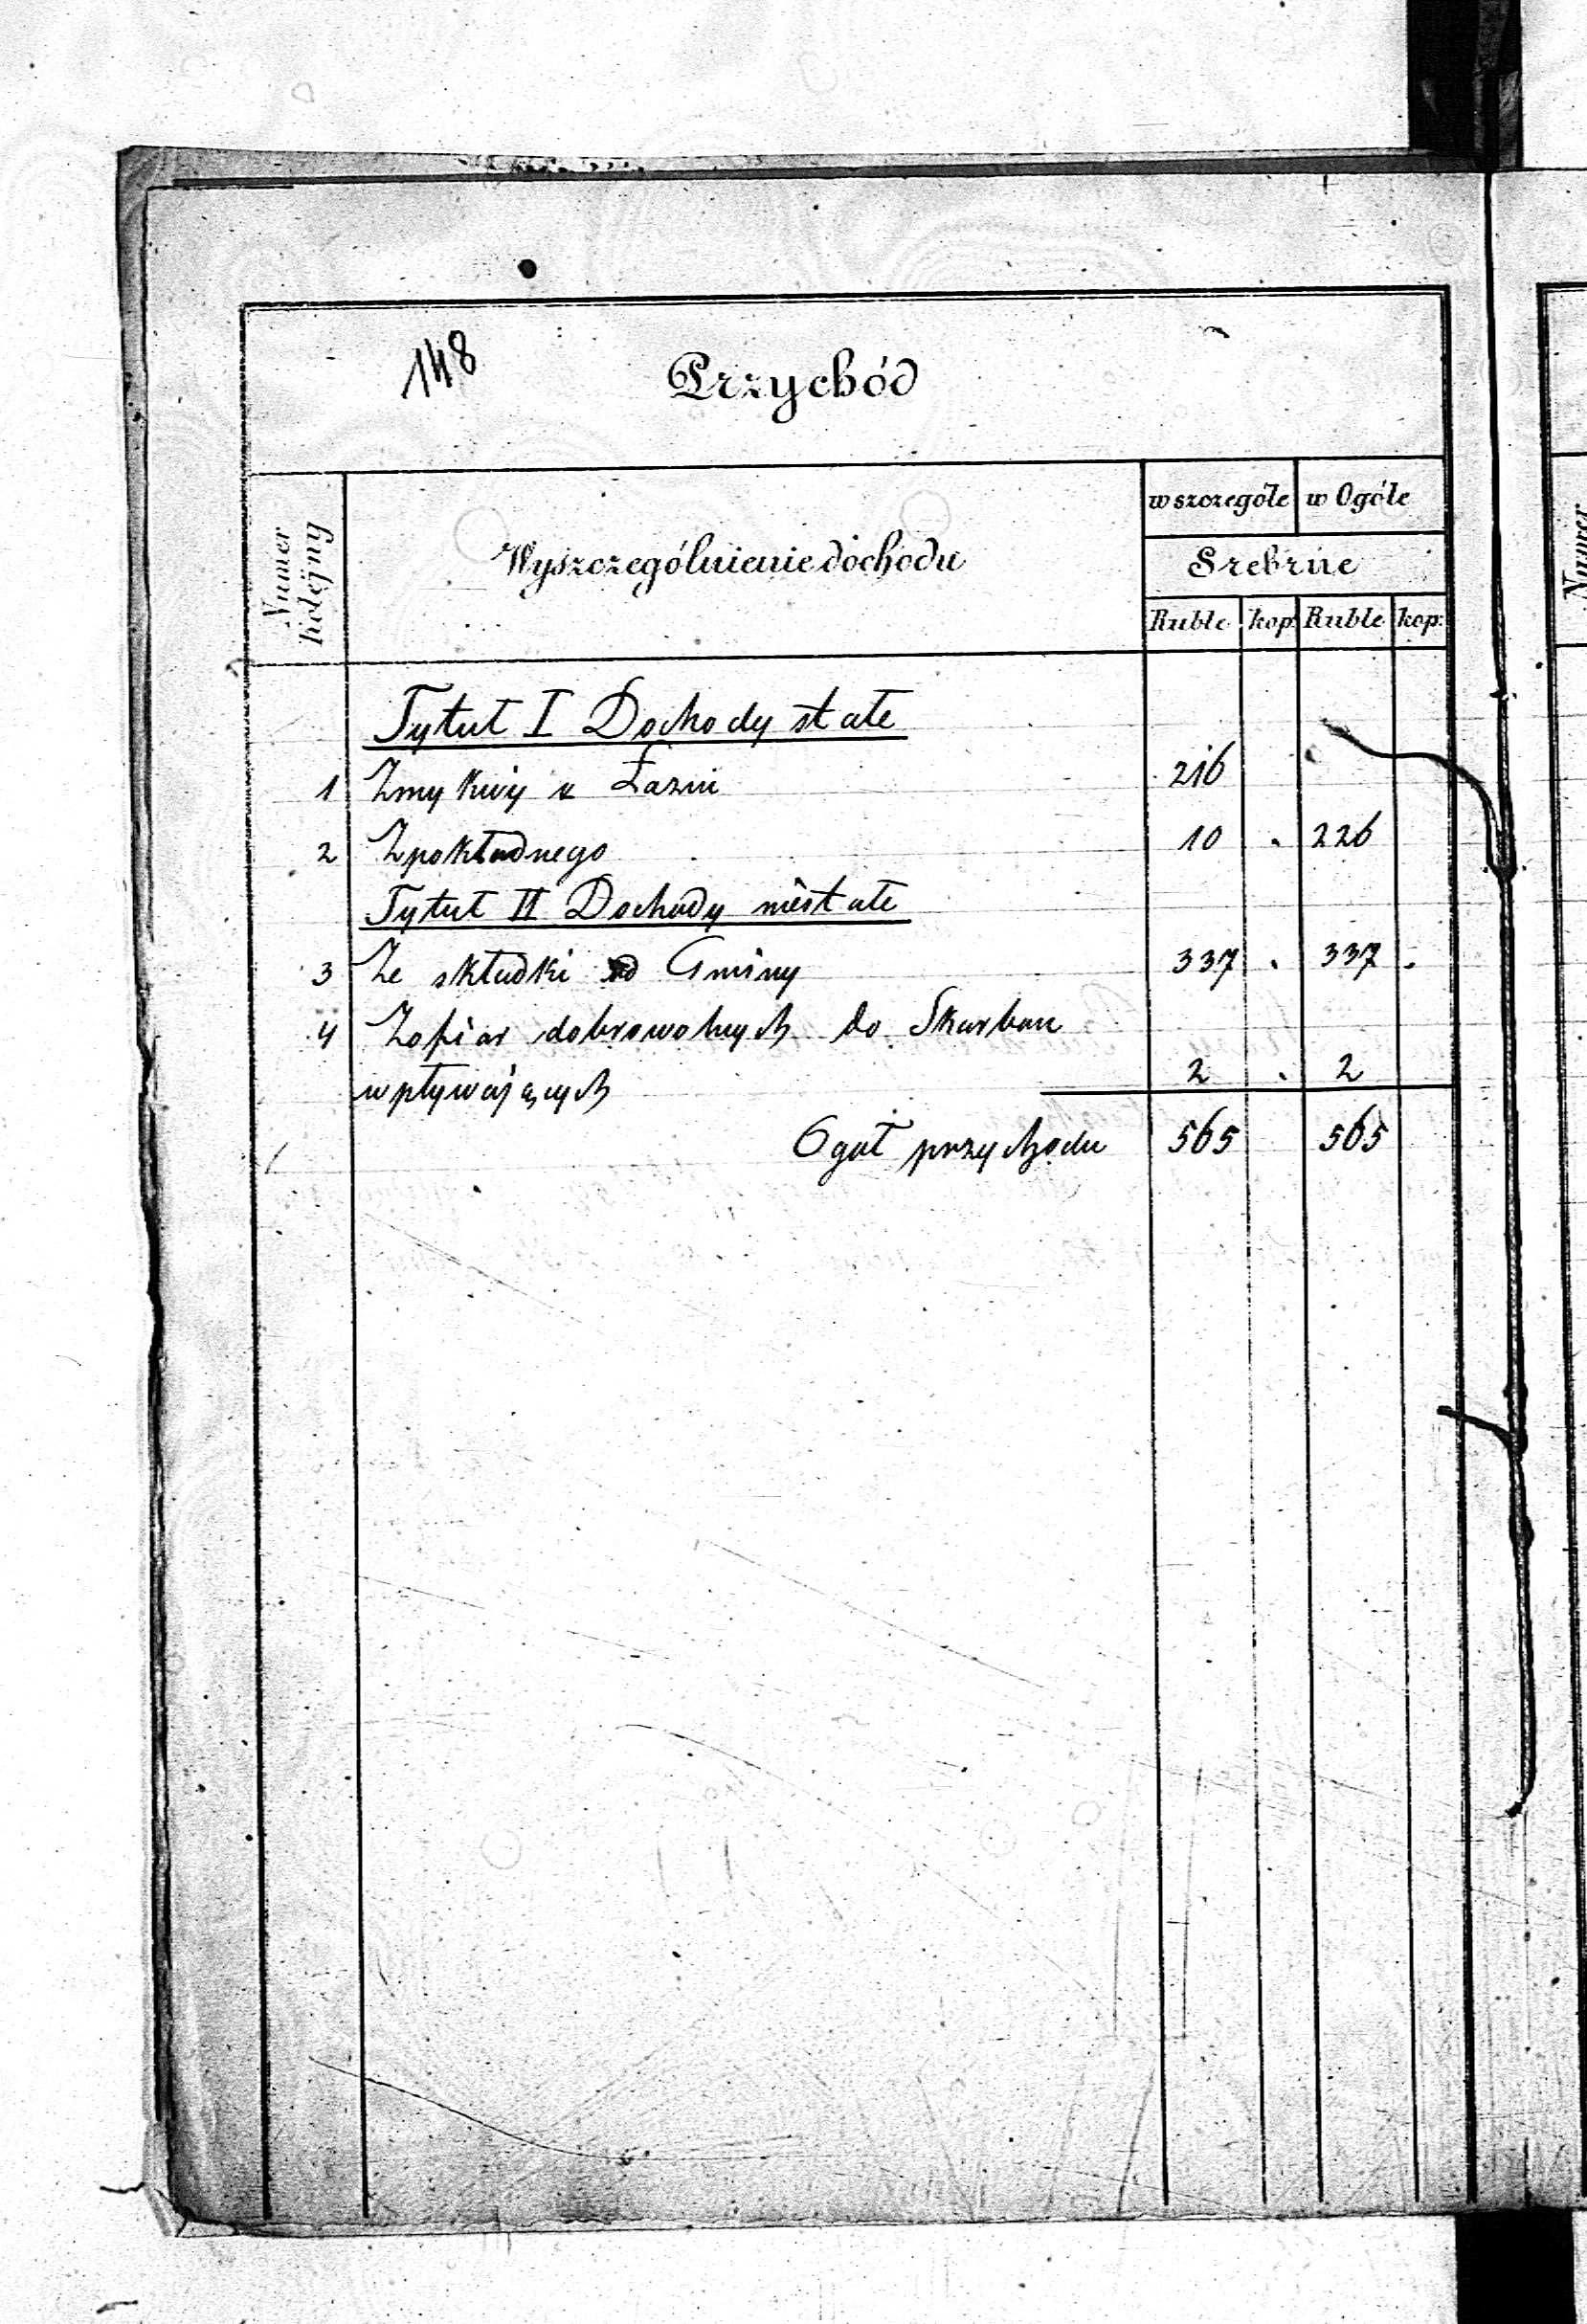 148
Przychód
Numer kolejny
Wyszczególnienie dochodu
w szczególe w Ogóle
Srebrne
Ruble kop: Ruble kop:
Tytuł I Dochody stałe
1 Zmykwy u Łazni 216
2 Zpokładnego 10 . 226
Tytuł II Dochody niestałe
3 Ze składki od Gminy 337 . 337 .
4 Zofiar dobrowolnych do Skarbon
wpływających 2 . 2
Ogół przychodu 565 565
Numer